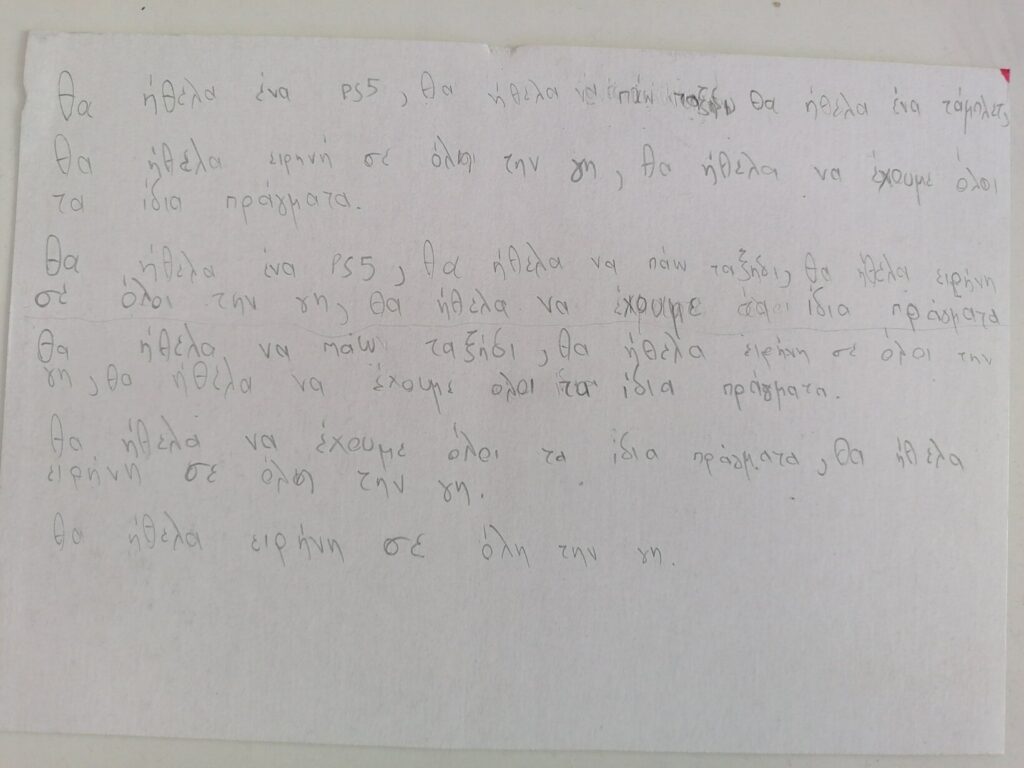 θα ήθελα ένα PS5, θα ήθελα να πάω ταξήδι θα ήθελα ένα τάμπλετ,
θα ήθελα ειρηνή σέ όλοι την γη, θα ήθελα να έχουμε όλοι
τα ίδια πράγματα.
θα ήθελα ένα PS5, θα ήθελα να πάω ταξήδι, θα ήθελα ειρήνη
σέ όλοι την γη, θα ήθελα να έχουμε ίδια πράγματα
θα ήθελα να πάω ταξήδι, θα ήθελα ειρήνη σε όλοι την
γη, θα ήθελα να έχουμε όλοι τα ίδια πράγματα.
θα ήθελα να έχουμε όλοι τα ίδια πράγματα, θα ήθελα
ειρήνη σέ όλη την γη.
θα ήθελα ειρήνη σέ όλη την γη.